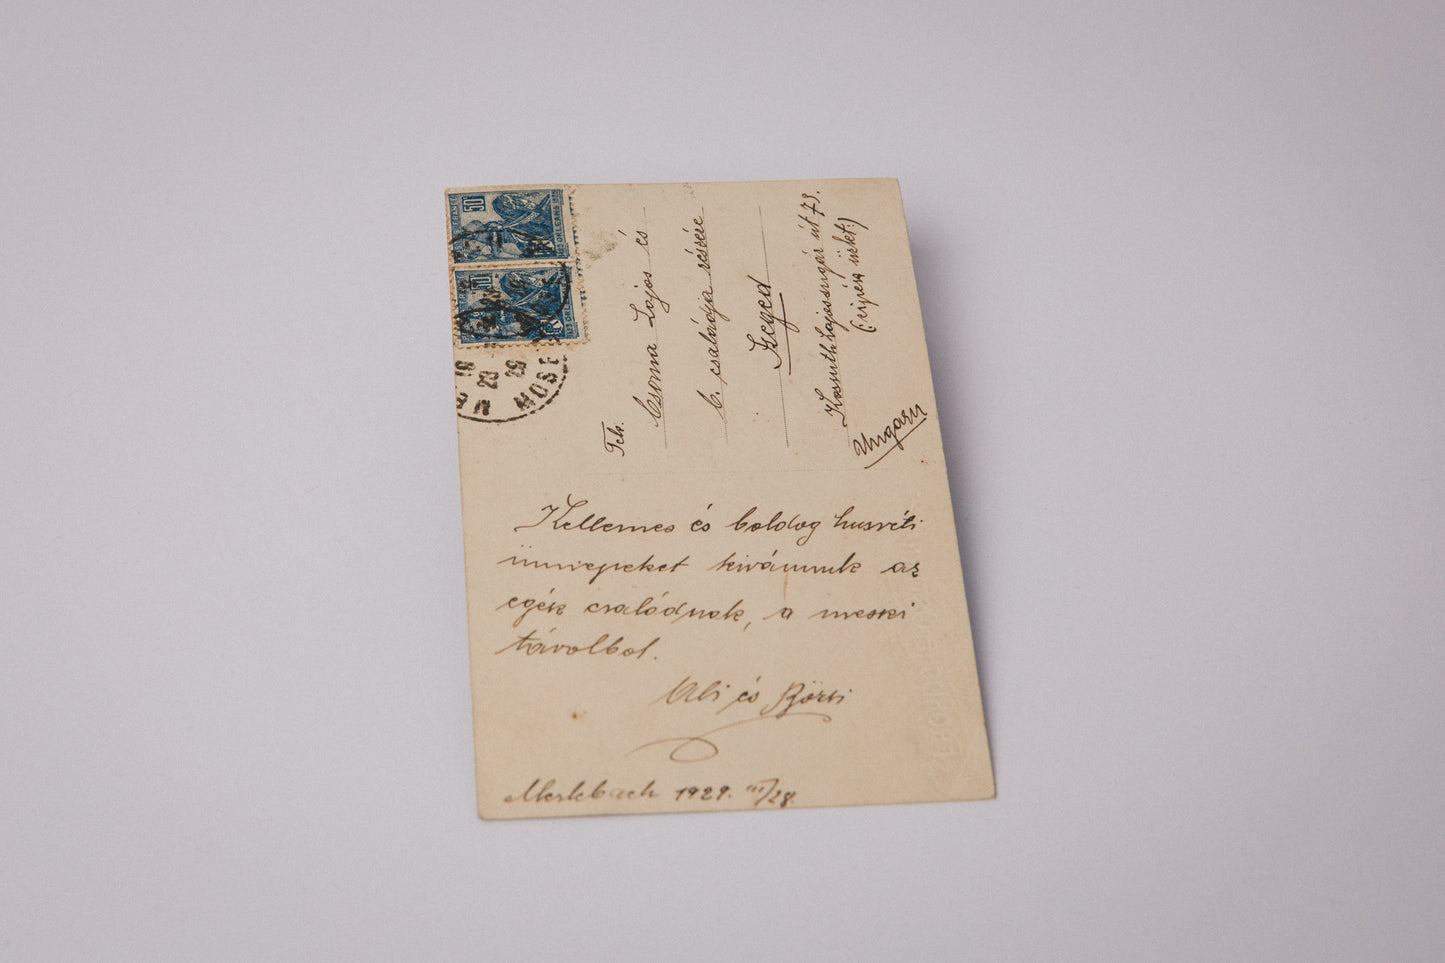 FRANCE 50
50
MOSE
Tek.
Csoma Lajos és
b. családja részére
Szeged
Kossuth Lajos sugár út 73.
(cipész üzlet)
Ungarn
Kellemes és boldog husvéti
ünnepeket kivánunk az
egész családnak, a messzi
távolbol.
Abi és Börzsi
Merlebach 1929. III/28.